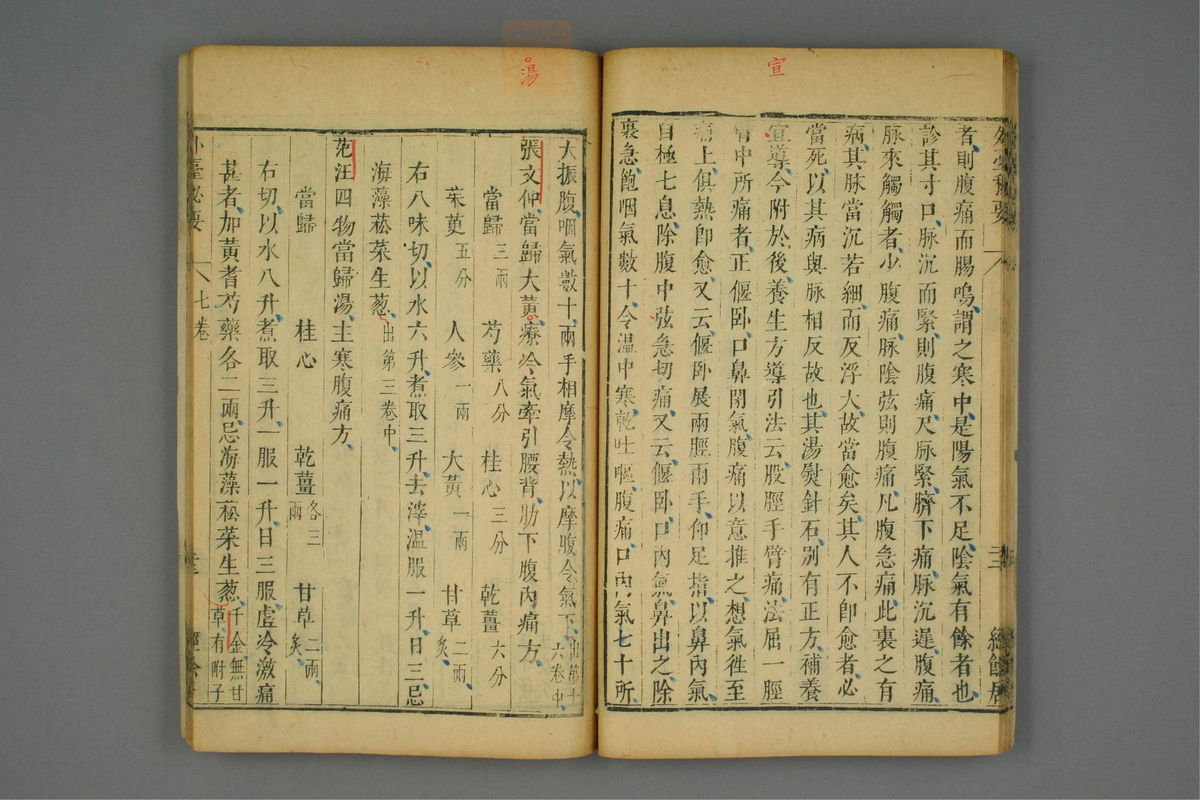 宣
外臺秘要
三
經餘居
者則腹痛而腸鳴謂之寒中是陽氣不足陰氣有餘者也
診其寸口脉沉而緊則腹痛尺脉緊臍下痛脉沉遲腹痛
脉來觸觸者少腹痛脉陰弦則腹痛凡腹急痛此裏之有
病其脉當沉若細而反浮大故當愈矣其人不即愈者必
當死以其病與脉相反故也其湯熨針石别有正方補養
宣導今附於後養生方導引法云股脛手臂痛法屈一脛
臂中所痛者正偃卧口鼻閉氣腹痛以意推之想氣徃至
痛上俱熱即愈又云偃卧展兩脛兩手仰足指以鼻內氣
自極七息除腹中弦急切痛又云偃卧口內氣鼻出之除
裏急飽咽氣數十令温中寒乾吐嘔腹痛口內氣七十所
湯
大振腹咽氣數十兩手相摩令熱以摩腹令氣下出第十六卷中
張文仲當歸大黃療冷氣牽引腰背肋下腹內痛方
當歸三兩 芍藥八分 桂心三分 乾薑六分
茱萸五分 人參一兩 大黃一兩 甘草二兩炙
右八味切以水六升煮取三升去滓温服一升日三忌
海藻菘菜生葱出第三卷中
范汪四物當歸湯主寒腹痛方
當歸 桂心 乾薑各三兩 甘草二兩炙
右切以水八升煮取三升一服一升日三服虛冷激痛
甚者加黃耆芍藥各二兩忌海藻菘菜生葱千金無甘草有附子
外臺秘要
七卷
三
經餘居